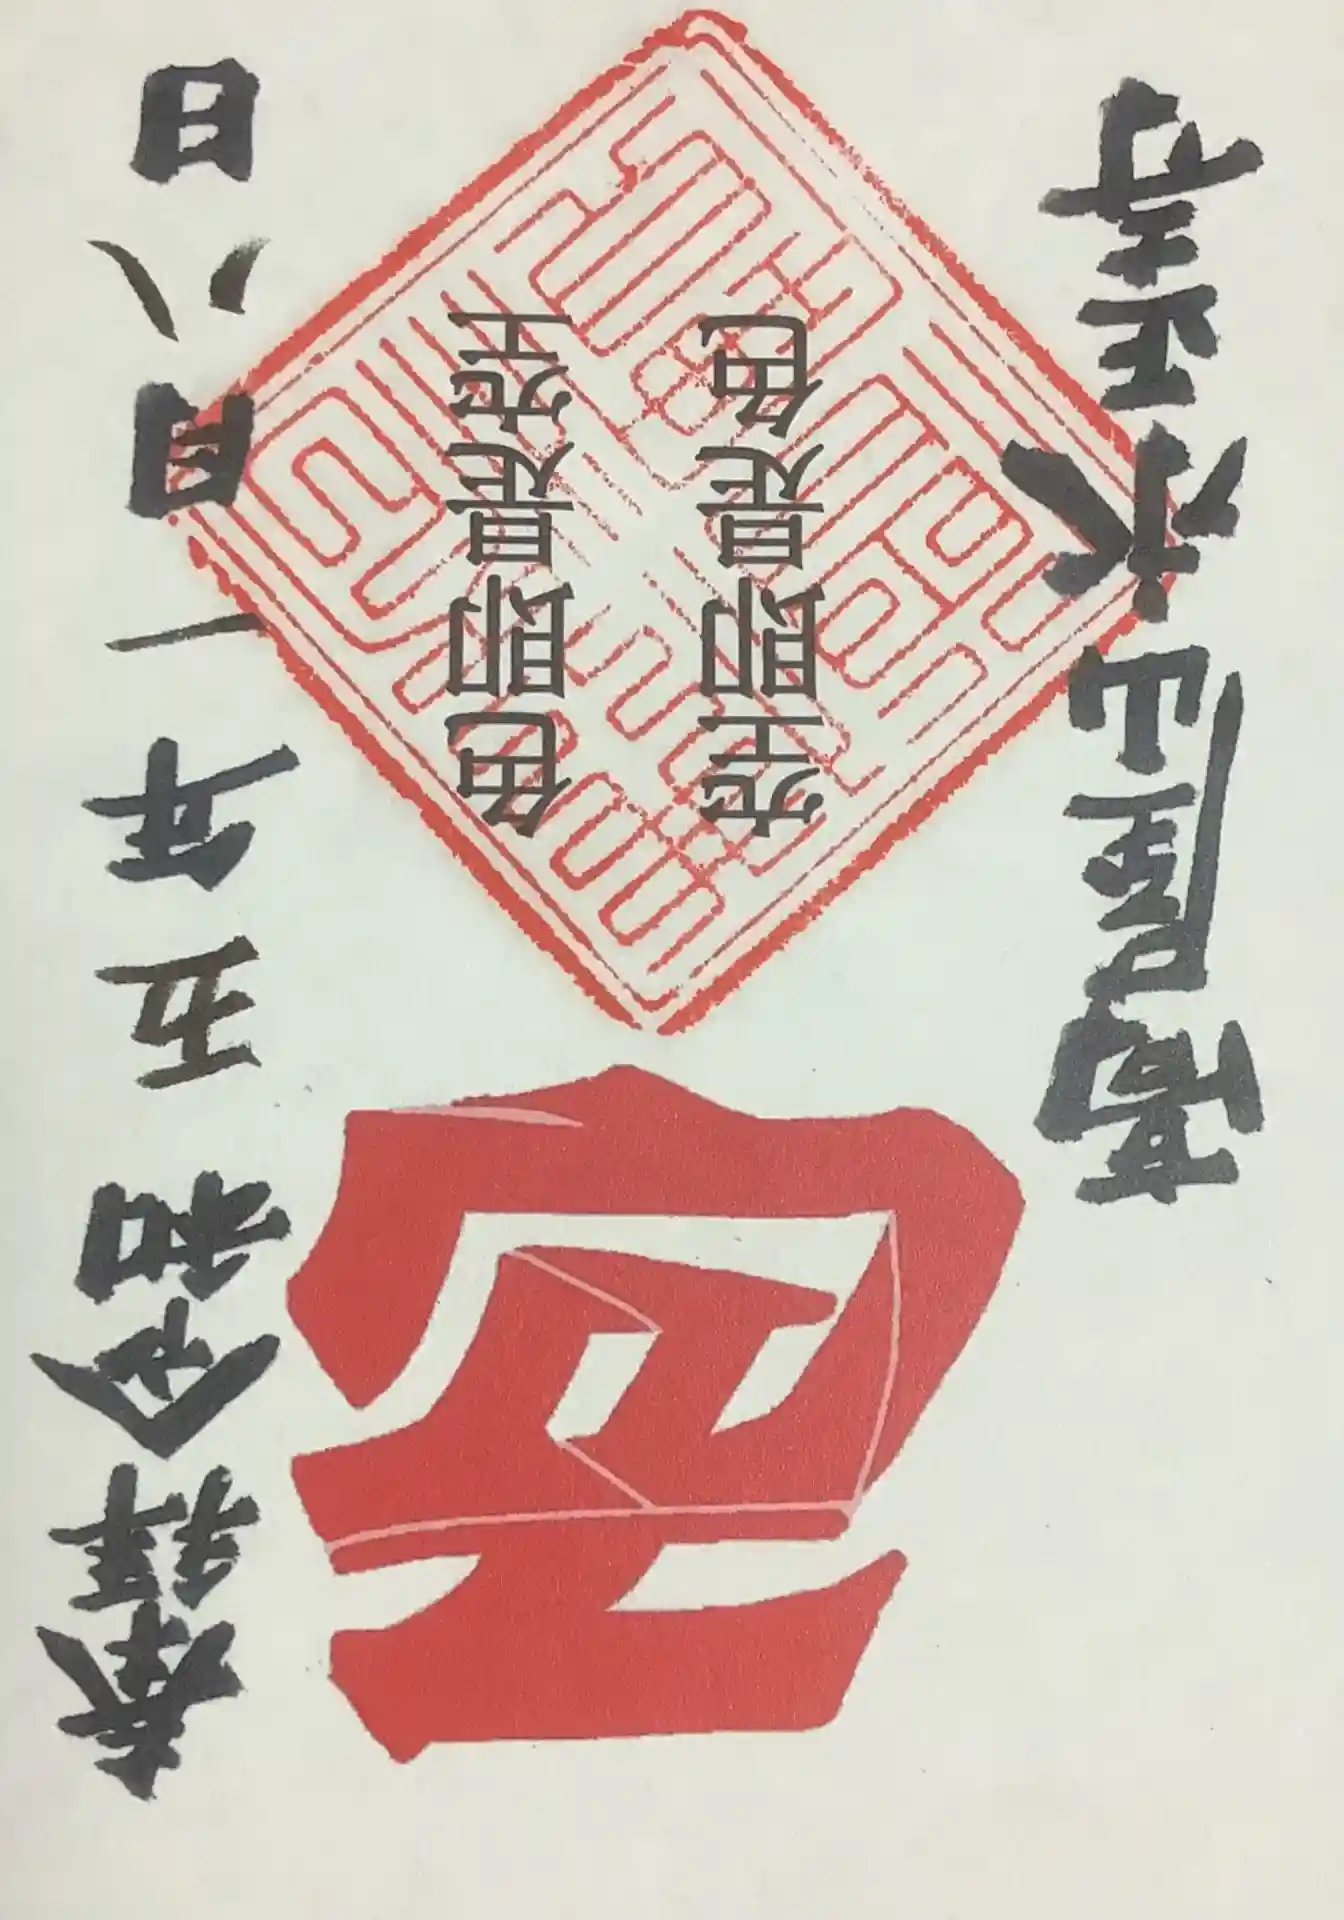 奉拝 令和五年一月八日
色即是空
空即是色
高屋山 正寺